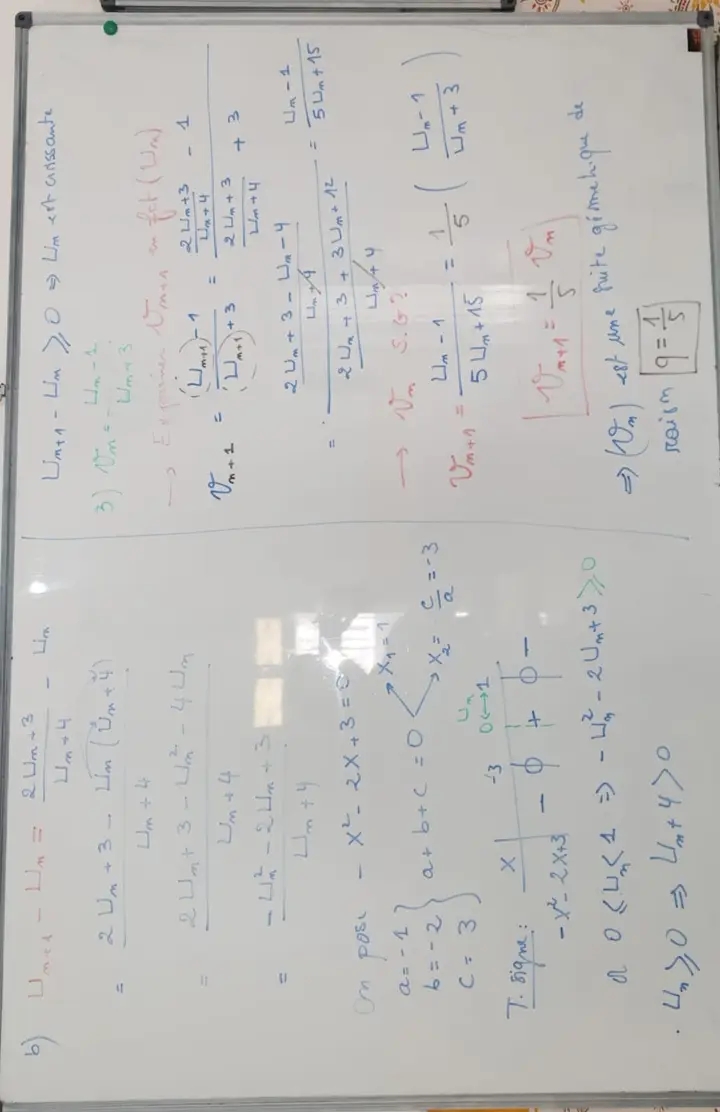 b) U_{n+1} - U_n = \frac{2U_n+3}{U_n+4} - U_n
= \frac{2U_n+3 - U_n(U_n+4)}{U_n+4}
= \frac{2U_n+3-U_n^2-4U_n}{U_n+4}
= \frac{-U_n^2-2U_n+3}{U_n+4}
On pose -x^2-2x+3=0
a=-1
b=-2 } a+b+c=0 → x_1=1
c=3 → x_2=\frac{c}{a}=-3
T. signe:
U_n
x -3 0↔1
-x^2-2x+3 - 0 + 0 -
or 0≤U_n<1 ⇒ -U_n^2-2U_n+3≥0
. U_n≥0 ⇒ U_n+4>0
U_{n+1}-U_n≥0 ⇒ U_n est croissante
3) V_n=\frac{U_n-1}{U_n+3}
→ Exprimer V_{n+1} en fct (U_n)
V_{n+1} = \frac{(U_{n+1})-1}{(U_{n+1})+3} = \frac{\frac{2U_n+3}{U_n+4}-1}{\frac{2U_n+3}{U_n+4}+3}
= \frac{\frac{2U_n+3-U_n-4}{U_n+4}}{\frac{2U_n+3+3U_n+12}{U_n+4}} = \frac{U_n-1}{5U_n+15}
→ V_n S.G?
V_{n+1} = \frac{U_n-1}{5U_n+15} = \frac{1}{5}(\frac{U_n-1}{U_n+3})
[V_{n+1}=\frac{1}{5}V_n]
⇒ (V_n) est une suite géometrique de
raison q=\frac{1}{5}